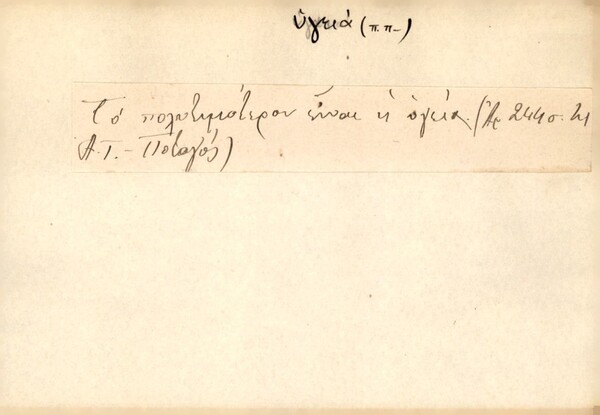 ὑγειά (π.π.)
Τό πολυτιμότερον εἶναι ἡ ὑγεία. (Ἀρ. 244 σ. 21
Α.Γ. - Ποταγός)